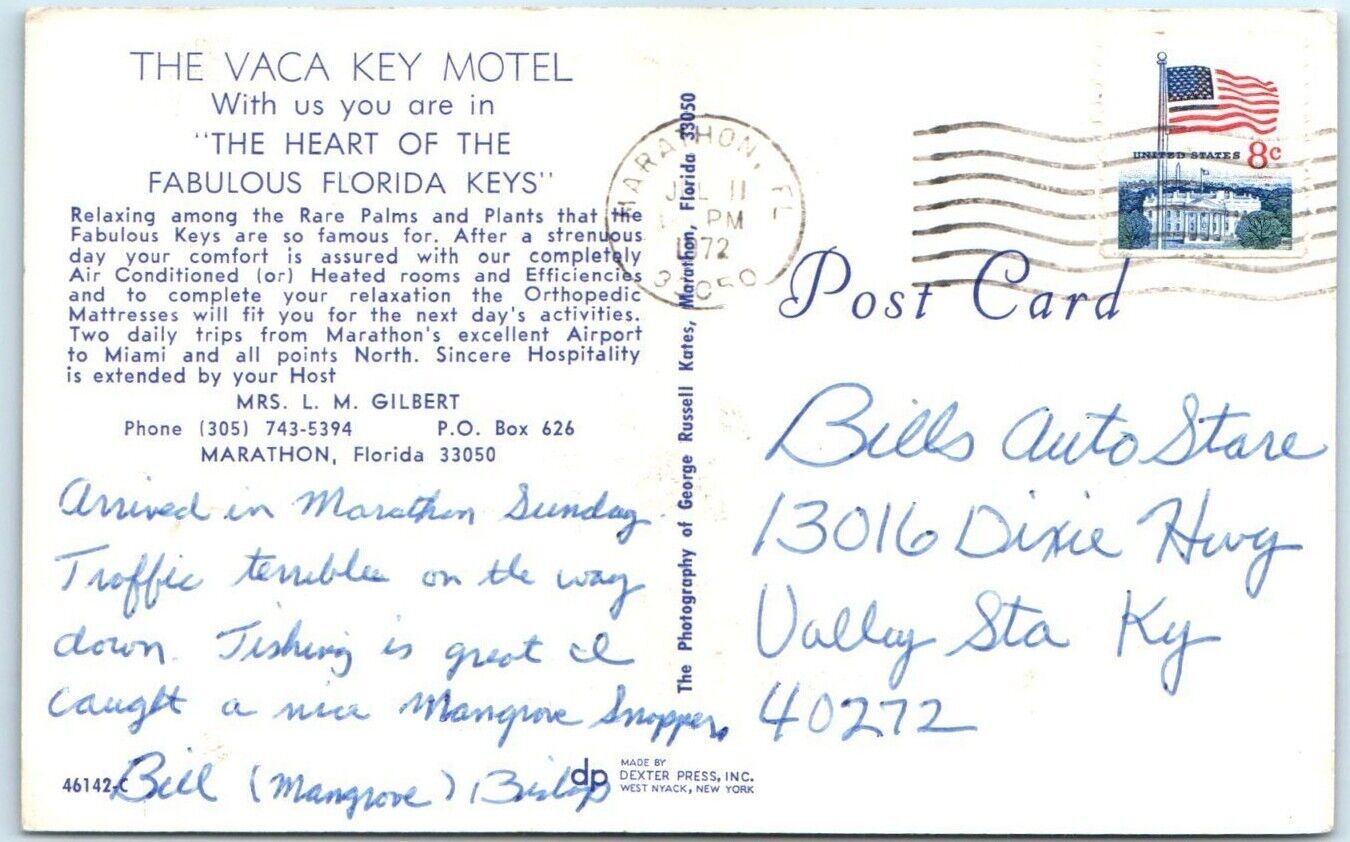 THE VACA KEY MOTEL
With us you are in
"THE HEART OF THE
FABULOUS FLORIDA KEYS"
Relaxing among the Rare Palms and Plants that the
Fabulous Keys are so famous for. After a strenuous
day your comfort is assured with our completely
Air Conditioned (or) Heated rooms and Efficiencies
and to complete your relaxation the Orthopedic
Mattresses will fit you for the next day's activities.
Two daily trips from Marathon's excellent Airport
to Miami and all points North. Sincere Hospitality
is extended by your Host
MRS. L. M. GILBERT
Phone (305) 743-5394 P.O. Box 626
MARATHON, Florida 33050
Arrived in Marathon Sunday.
Traffic terrible on the way
down. Fishing is great I
caught a nice Mangrove Snapper.
Bill (Mangrove) Bishop
46142-C
The Photography of George Russell Kates, Marathon, Florida 33050
dp
MADE BY
DEXTER PRESS, INC.
WEST NYACK, NEW YORK
MARATHON, FL
JUL 11
PM
1972
33050
UNITED STATES 8c
Post Card
Bills Auto Store
13016 Dixie Hwy
Valley Sta Ky
40272